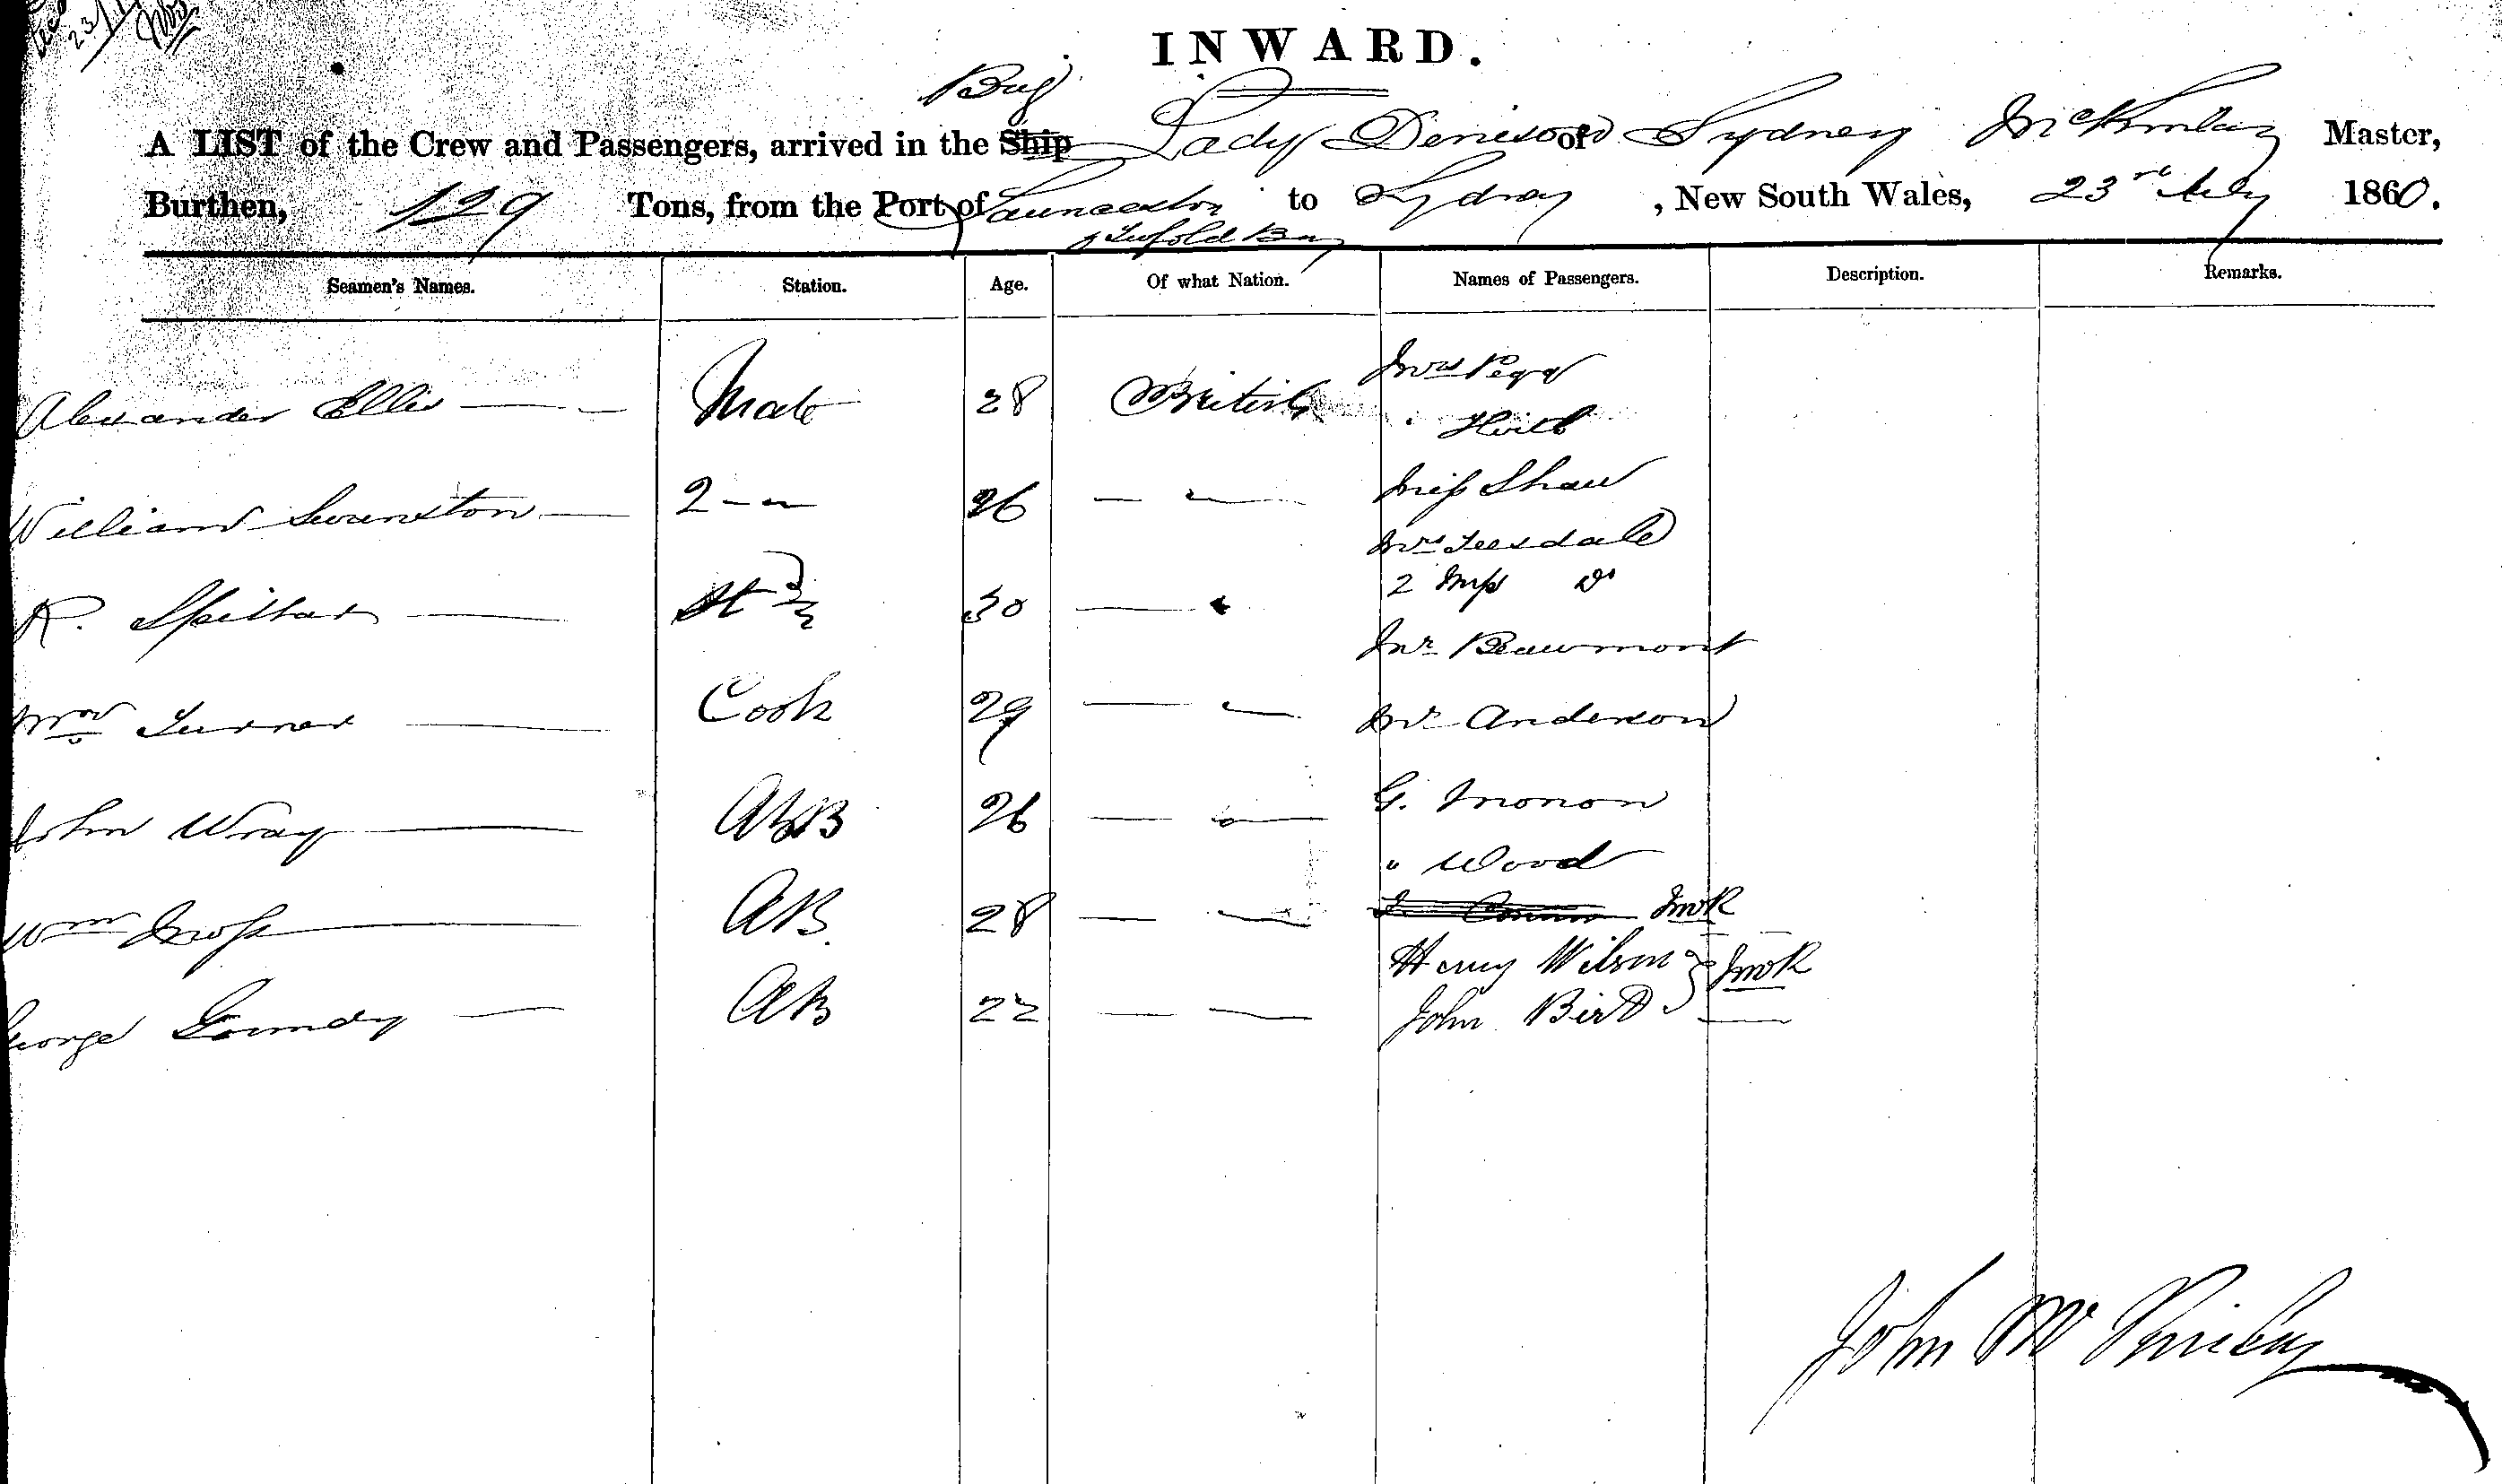 23/
INWARD.
Brig
A LIST of the Crew and Passengers, arrived in the Ship Lady Denison of Sydney McKinlay Master,
Burthen, 129 Tons, from the Port of Launceston to Sydney, New South Wales, 23rd July 1860.
Twofold Bay
Seamen's Names. Station. Age. Of what Nation. Names of Passengers. Description. Remarks.
Alexander Ellis Mate 28 British Mrs Pegg
William Swanston 2 " 26 " Miss Shaw
Mrs Teesdale
R. Spillar St 30 " 2 Miss Do
Mr Beaumont
Wm Turner Cook 29 " Mr Anderson
John Wray AB 26 " G. Monon
" Wood
Wm Moss AB 28 "
Henry Wilson
George Grundy AB 22 " John Bird
John McKinlay